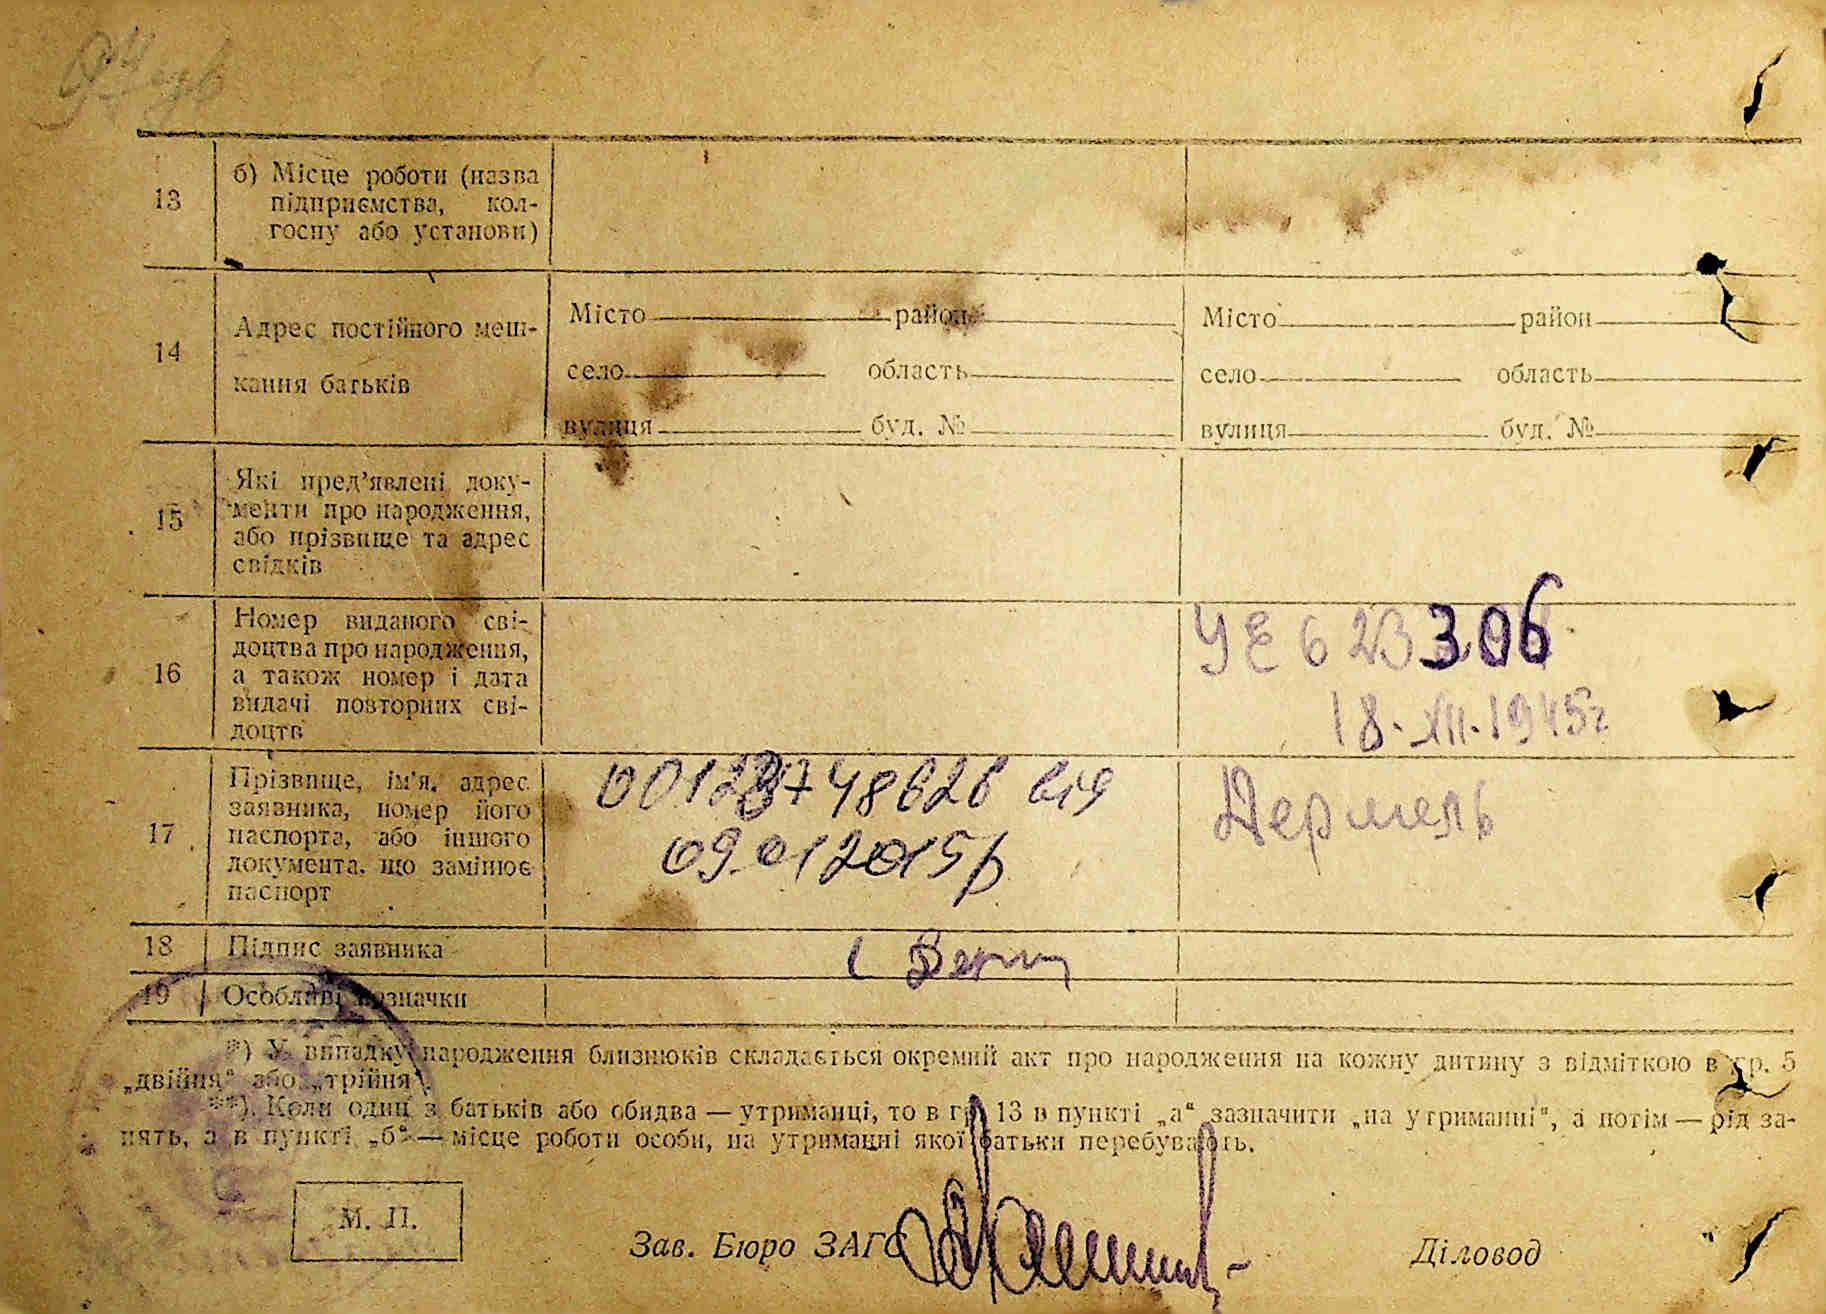 13
б) Місце роботи (назва
підприємства, кол-
госпу або установи)
14
Адрес постійного меш-
кання батьків
Місто район
село область
вулиця буд. №
Місто район
село область
вулиця буд. №
15
Які пред'явлені доку-
менти про народження,
або прізвище та адрес
свідків
16
Номер виданого сві-
доцтва про народження,
а також номер і дата
видачі повторних сві-
доцтв
УЕ 623306
18.XII.1945г
17
Прізвище, ім'я, адрес
заявника, номер його
паспорта, або іншого
документа, що замінює
паспорт
від
09.01 2015р
18
Підпис заявника
19
Особливі зазначки
*) У випадку народження близнюків складається окремий акт про народження на кожну дитину з відміткою в гр. 5
„двійня“ або „трійня“.
**) Коли один з батьків або обидва — утриманці, то в гр. 13 в пункті „а“ зазначити „на утриманні“, а потім — рід за-
нять, а в пункті „б“ — місце роботи особи, на утриманні якої батьки перебувають.
М. П.
Зав. Бюро ЗАГС
Діловод